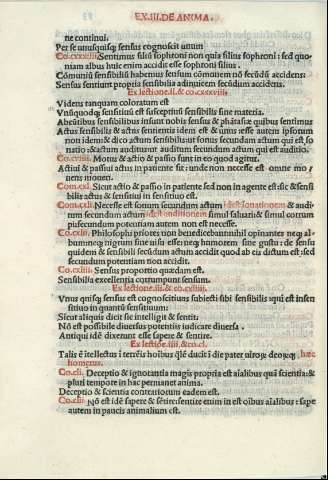 EX.III.DE ANIMA.
ne continui.
Per se unusquisq; sensus cognoscit unum
Sentimus filii sophroni non quia filius sophroni: sed quo
niam albus huic enim accidit esse sophroni filius.
Cōmuniū sensibiliū habemus sensum cōmunem nō secūdū accidens:
Sensus sentiunt propria sensibilia adinuicem secūdum accidens.
Ex lectione.ii.& co.cxxxviii.
Videns tanquam coloratum est
Vnūquodq; sensitiuū est susceptiuū sensibilis sine materia.
Abeūtibus sensibilibus insunt nobis sensus & phātasiæ quibus sentimus
Actus sensibilis & actus sentientis idem est & unus: esse autem ipsorum
non idem: & dico actum sensibilis ut sonus secundum actum qui est so
natio: & actum audituum auditum secundum actum qui est auditio.
Motus & actio & passio sunt in eo quod agitur.
Actiui & passiui actus in patiente fit: unde non necesse est omne mo
uens moueri.
Com.cxl. Sicut actio & passio in patiente sed non in agente est: sic & sensi
bilis actus & sensitiui in sensitiuo est.
Com.cxli. Necesse est sonum secundum actum idest sonationem & audi
tum secundum actum idest auditionem simul saluari: & simul corrum
pi: secundum potentiam autem non est necesse.
Philosophi priores non benedicebant: nihil opinantes neq; al
bum neq; nigrum sine uisu esse: neq; humorem sine gustu: de sensu
quidem & sensibili secūdum actum accidit quod ab eis dictum est: sed
secundum potentiam non accidit.
Sensus proportio quædam est.
Sensibilis excellentia corrumpunt sensum.
Vnus quisq; sensus est cognoscitiuus subiecti sibi sensibilis
sitiuo in quantū sensitiuum:
Sicut aliquis dicit sic intelligit & sentit.
Nō est possibile diuersus potentiis iudicare diuersa.
Antiqui idē dixerunt esse sapere & sentire.
Talis ē ītellectus ī terrēis hoībus qlē ducit ī die pater hæc
homerus.
Co.cli. Deceptio & ignorantia magis propria est aīalibus quā scientia: &
pluri tempore in hac permanet anima.
Deceptio & scientia contrariorum eadem est.
Nō est idē sapere & sentire: sentire enim in est oībus aīalibus: sape
autem in paucis animalium est.